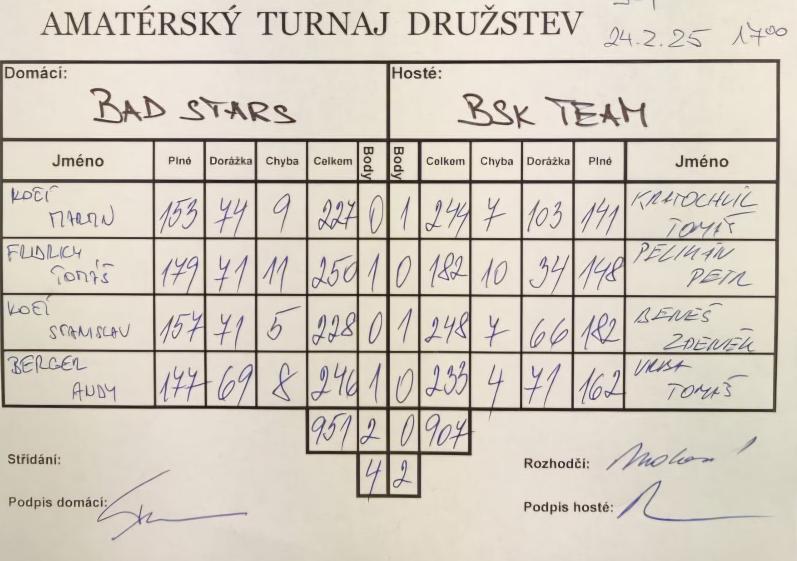 AMATÉRSKÝ TURNAJ DRUŽSTEV
24.2.25 17⁰⁰
Domácí: Hosté:
BAD STARS BSK TEAM
Jméno Plné Dorážka Chyba Celkem Body Body Celkem Chyba Dorážka Plné Jméno
KOČÍ MARTIN 153 74 9 227 0 1 244 7 103 141 KRATOCHVÍL TOMÁŠ
FRIDRICH TOMÁŠ 179 71 11 250 1 0 182 10 34 148 PELIKÁN PETR
KOČÍ STANISLAV 157 71 5 228 0 1 248 7 66 182 BENEŠ ZDENĚK
BERGER ANDY 177 69 8 246 1 0 233 4 71 162 VRBA TOMÁŠ
951 2 0 907
4 2
Střídání:
Rozhodčí:
Podpis domácí:
Podpis hosté: